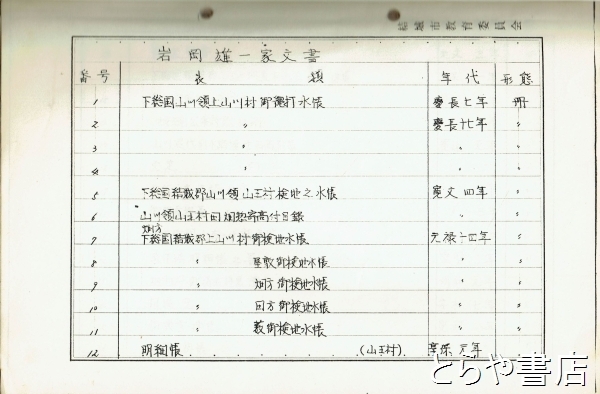 結城市教育委員会
岩岡雄一家文書
番号 表 積 年代 形態
1 下総国山川領上山川村御縄打水帳 慶長七年 冊
2 〃 慶長十七年 〃
3 〃 〃 〃
4 〃 〃 〃
5 下総国結城郡山川領山王村検地之水帳 寛文四年 〃
6 山川領山王村田畑惣寄高付目録 〃 〃
7 畑方
下総国結城郡上山川村御検地水帳 元禄十四年 〃
8 〃 屋敷御検地水帳 〃 〃
9 〃 畑方御検地水帳 〃 〃
10 〃 田方御検地水帳 〃 〃
11 〃 藪御検地水帳 〃 〃
12 明細帳 (山王村) 享保元年
とらや書店